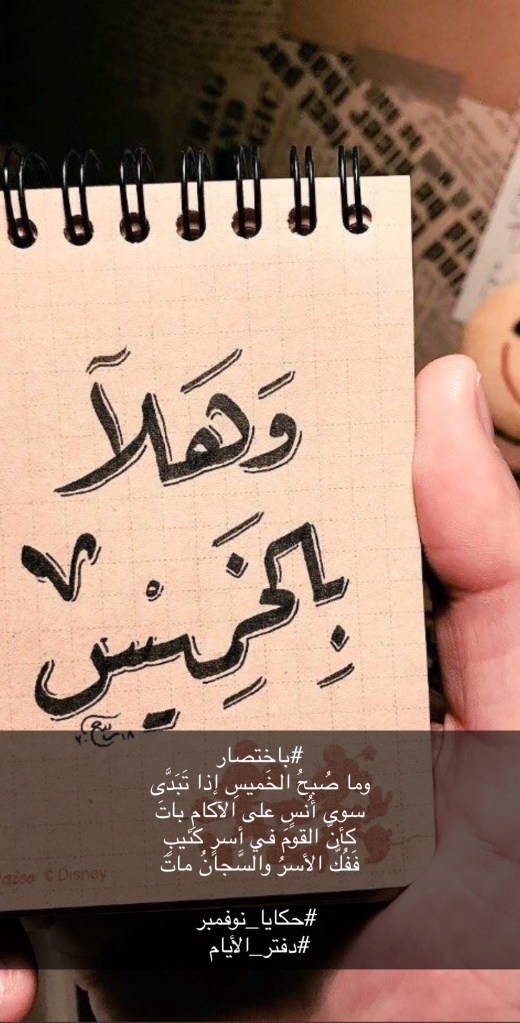 وَهَلآ
بِالخَمِيْس
#باختصار
وما صُبحُ الخَميسِ إذا تَبَدَّى
سوى أُنسٍ على الآكامِ باتَ
كأن القومَ في أسرٍ كَئيبٍ
فَفُكَّ الأسرُ والسَّجانُ ماتَ
© Disney
#حكايا_نوفمبر
#دفتر_الأيام